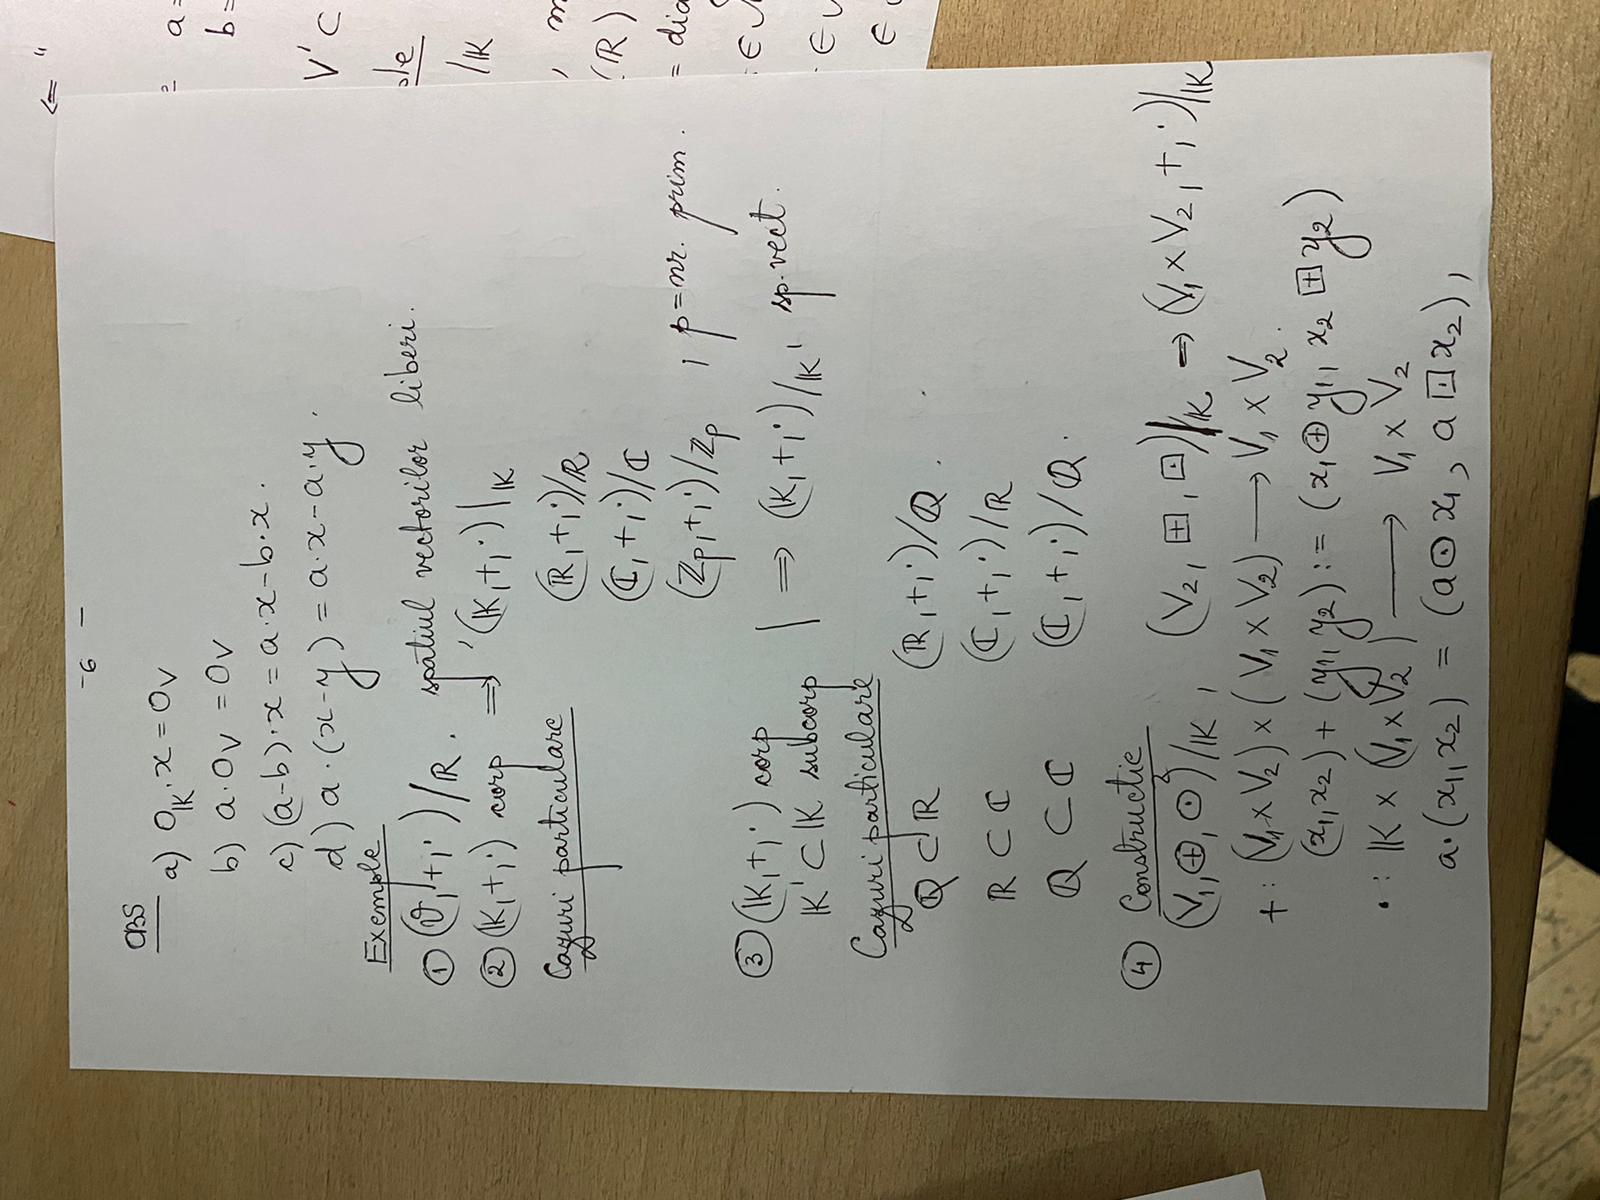 - 6 -
OBS
a) 0_𝕂 · x = 0_V
b) a · 0_V = 0_V
c) (a-b) · x = a · x - b · x .
d) a · (x-y) = a · x - a · y .
Exemple
① (𝒱, +, ·)/ℝ . spațiul vectorilor liberi.
② (𝕂, +, ·) corp ⇒ (𝕂, +, ·)|𝕂
Cazuri particulare (ℝ, +, ·)/ℝ
(ℂ, +, ·)/ℂ
(ℤ_p, +, ·)/ℤ_p , p = nr. prim .
③ (𝕂, +, ·) corp
𝕂' ⊂ 𝕂 subcorp | ⇒ (𝕂, +, ·)/𝕂' sp. vect .
Cazuri particulare
ℚ ⊂ ℝ (ℝ, +, ·)/ℚ .
ℝ ⊂ ℂ (ℂ, +, ·)/ℝ
ℚ ⊂ ℂ (ℂ, +, ·)/ℚ .
④ Construcție
(V₁, ⊕, ⊙)/𝕂 , (V₂, ⊞, ⊡)/𝕂 ⇒ (V₁ × V₂, +, ·)/𝕂
+ : (V₁ × V₂) × (V₁ × V₂) ⟶ V₁ × V₂ .
(x₁, x₂) + (y₁, y₂) := (x₁ ⊕ y₁, x₂ ⊞ y₂)
· : 𝕂 × (V₁ × V₂) ⟶ V₁ × V₂
a · (x₁, x₂) = (a ⊙ x₁, a ⊡ x₂) ,
⇐ "
a =
b =
V' ⊂
/𝕂
(ℝ)
= dia
∈
∈
∈